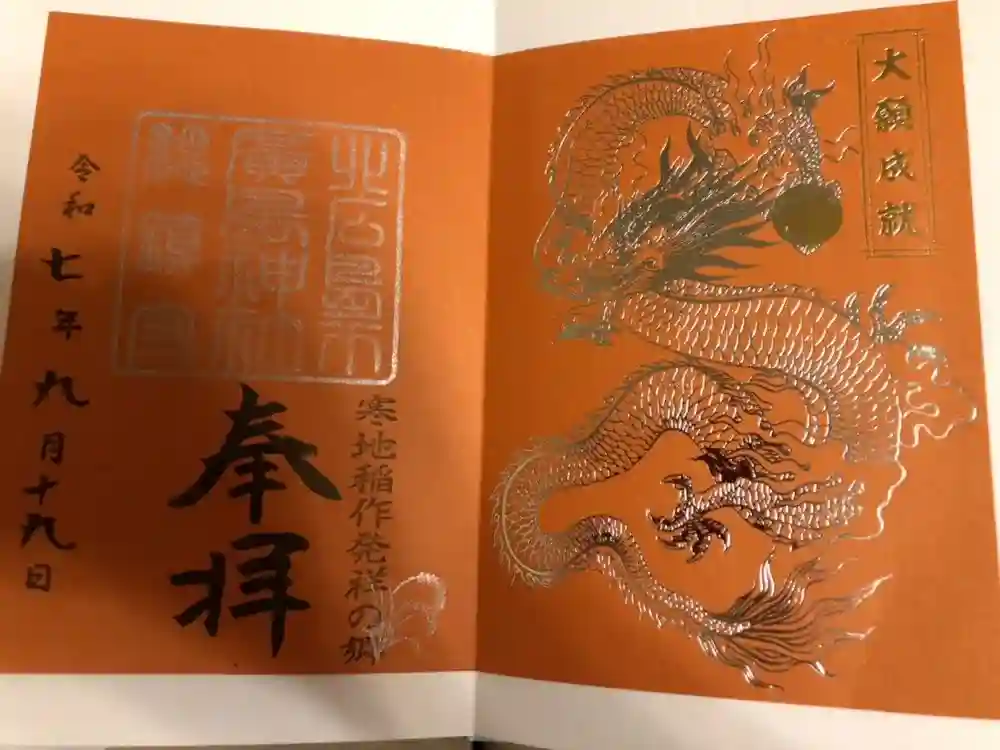 大願成就
北広島市
廣島神社
寒地稲作発祥の郷
奉拝
令和七年九月十九日